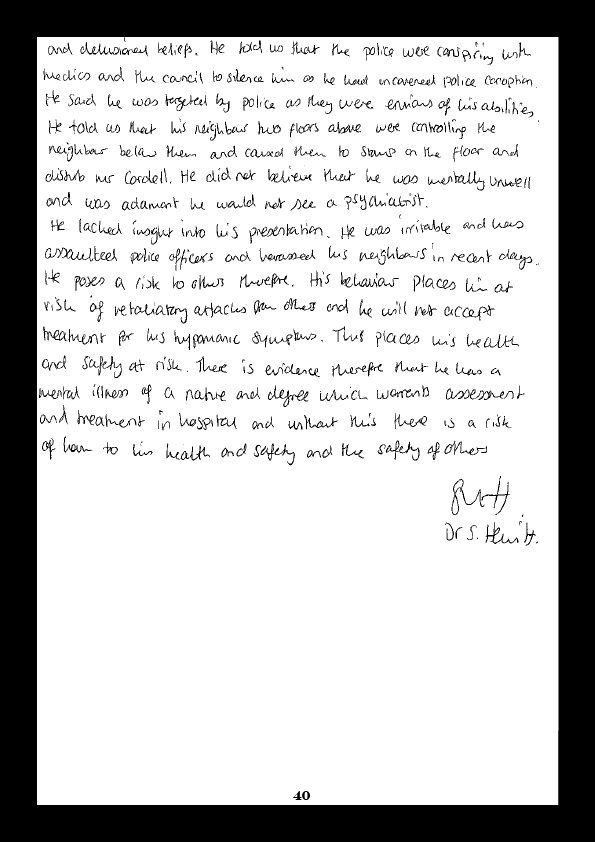 and delusional beliefs. He told us that the police were conspiring with
medics and the council to silence him as he had uncovered police coroption.
He said he was targeted by police as they were envious of his abilities.
He told us that his neighbour two floors above were controlling the
neighbour below them and caused them to stamp on the floor and
disturb mr Cordell. He did not believe that he was mentally unwell
and was adamant he would not see a psychiatrist.
He lacked insight into his presentation. He was irritable and has
assaulted police officers and harassed his neighbours in recent days.
He poses a risk to others therefore. His behaviour places him at
risk of retaliatory attacks from others and he will not accept
treatment for his hypomanic symptoms. This places his health
and safety at risk. There is evidence therefore that he has a
mental illness of a nature and degree which warrants assessment
and treatment in hospital and without this there is a risk
of harm to his health and safety and the safety of others
Dr S. Hewitt.
40